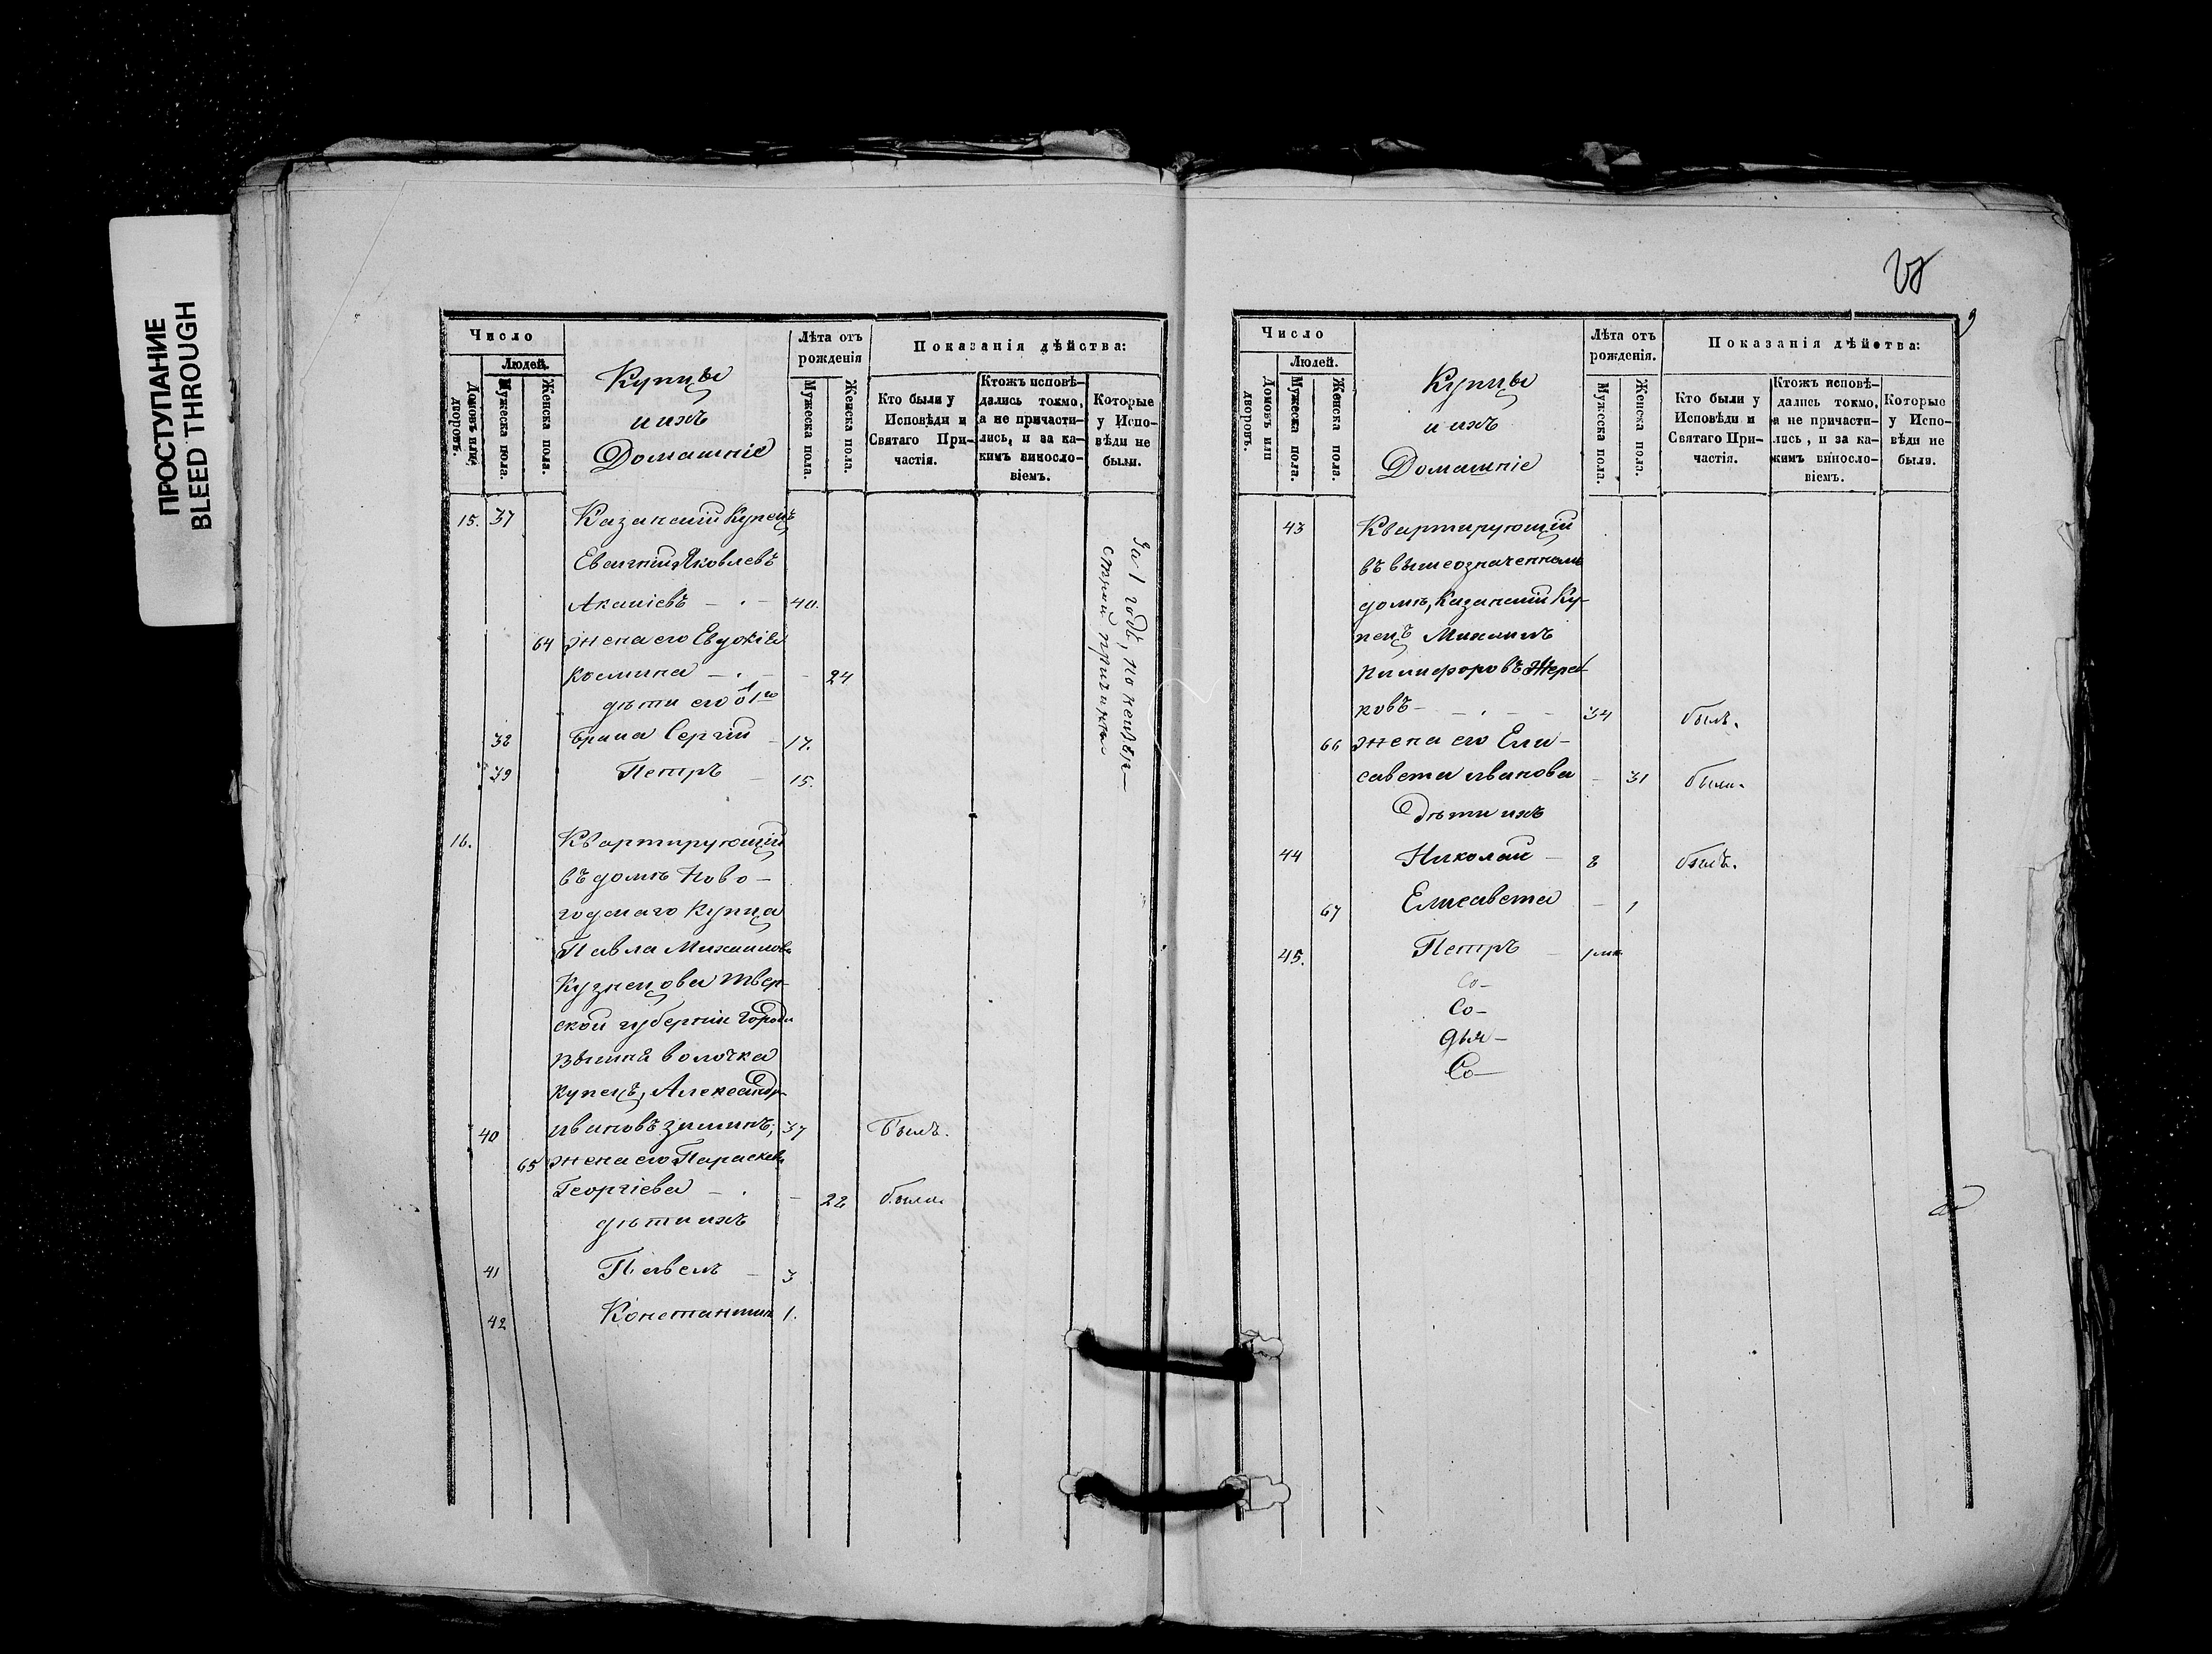 ПРОСТУПАНИЕ
BLEED THROUGH
Число
Людей.
Домовъ или дворовъ.
Мужеска пола.
Женска пола.
Купцы
и ихъ
Домашніе
Лѣта отъ рожденія
Мужеска пола.
Женска пола.
Показанія дѣйства:
Кто были у Исповѣди и Святаго При-частія.
Ктожъ исповѣ-дались токмо, а не причасти-лись, и за ка-кимъ винослo-віемъ.
Которые у Испо-вѣди не были.
15. 37 Казанскій Купецъ
Евгеній Яковлевъ
40.
64 жена его Евдокія
Космина 24
дѣти его
38 брака Сергій 17.
39 Петръ 15.
За 1 годъ, по неизвѣ-
стной причинѣ
16. Квартирующій
въ домѣ Ново-
Купца
Павла Михаилова
Кузнецова Твер-
ской губерніи Города
Вышня волочка
купецъ, Александръ
40 Ивановъ Зиминъ, 37 Былъ.
65 жена его Параскева
Георгіева 28 была
дѣти ихъ
41 Павелъ 3
42 Константинъ 1.
9
Число
Людей.
Домовъ или дворовъ.
Мужеска пола.
Женска пола.
Купцы
и ихъ
Домашніе
Лѣта отъ рожденія.
Мужеска пола.
Женска пола.
Показанія дѣйства:
Кто были у Исповѣди и Святаго При-частія.
Ктожъ исповѣ-дались токмо, а не причасти-лись, и за ка-кимъ винослo-віемъ.
Которые у Испо-вѣди не были.
43 Квартирующій
въ вышеозначенномъ
домѣ, Казанскій Ку-
пецъ Михаилъ
Никифоровъ
ковъ 34 былъ.
66 жена его Ели-
савета Иванова 31 была.
Дѣти ихъ
44 Николай 8 былъ.
67 Елисавета 1
45. Петръ
Со-
Со-
Дья-
Со-